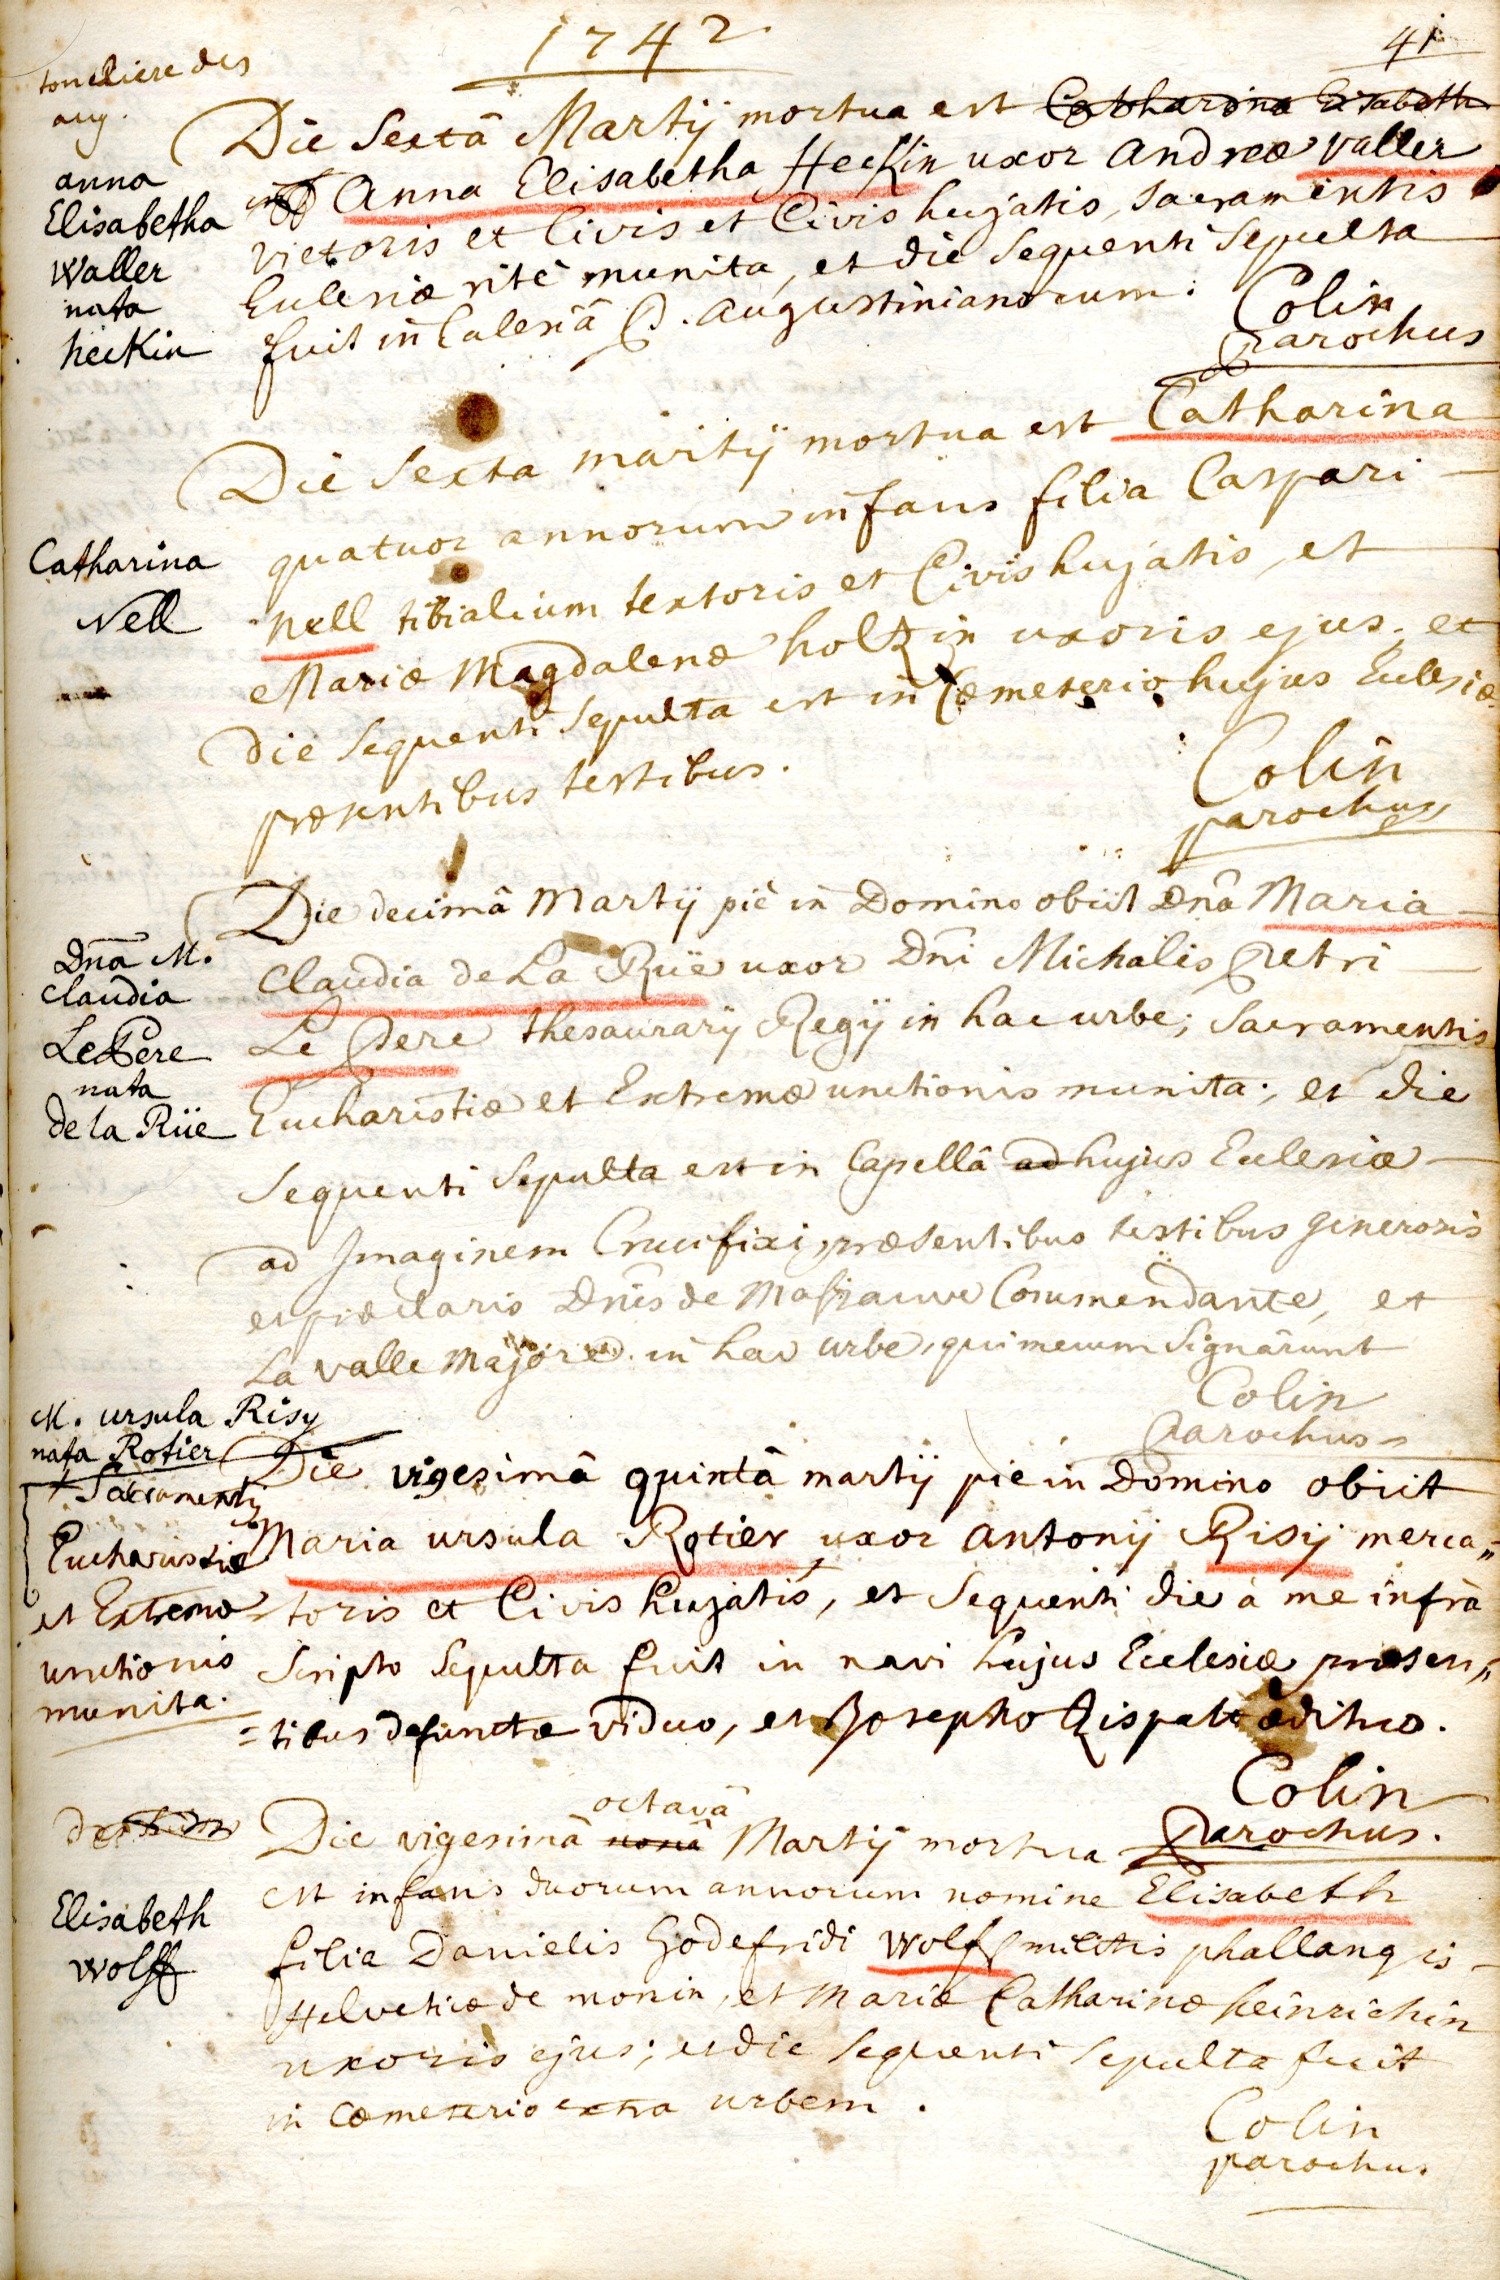 1742
41
toneliere des
aug.
Die Sextâ Martij mortua est Catharina Elisabeth
Anna Elisabetha Heckin uxor Andreæ Valler
vietoris et Civis et Civis hujatis, Sacramentis
Eclesiæ ritè munita, et die Sequenti Sepulta
fuit in Eclesiâ P. Augustinianorum.
Colin
parochus
anna
Elisabetha
Waller
nata
heckin
Die Sexta martij mortua est Catharina
quatuor annorum infans filia Caspari
Nell tibialium textoris et Civis hujatis, et
Mariæ Magdalenæ holtzin uxoris ejus; et
die Sequenti Sepulta est in Cœmeterio hujus Eclesiæ
præsentibus testibus.
Colin
parochus
Catharina
Nell
Die decimâ Martij piè in Domino obiit Dnā Maria
Claudia de La Rüe uxor Dni Michalis Petri
Le Pere thesaurarij Regij in hac urbe; Sacramentis
Eucharistiæ et Extremæ unctionis munita; et die
Sequenti Sepulta est in Capellâ ad hujus Eclesiæ
ad Imaginem Crucifixi, præsentibus testibus generosis
et præclaris Dnis de Commendante, et
La valle Majore in hac urbe, qui mecum Signârunt
Colin
Parochus
Dnā M.
Claudia
Le Pere
nata
de la Rüe
M. ursula Risy
nata Rotier
Die vigesimâ quintâ martij piè in Domino obiit
Maria ursula Rotier uxor Antonij Risij merca„
toris et Civis hujatis, et Sequenti die à me infrà
Scripto Sepulta fuit in navi hujus Eclesiæ præsen„
=tibus defunctæ viduo, et Josepho Zispele ædituo.
Colin
Parochus.
+ Sacramentis
Eucharistiæ
et Extremæ
unctionis
munita.
octavâ
Die vigesimâ nonâ Martij mortua
est infans duorum annorum nomine Elisabeth
filia Danielis Godefridi Wolff militis phallangis
Helveticæ de monin, et Mariæ Catharinæ heinrichin
uxoris ejus; et die Sequenti Sepulta fuit
in Cœmeterio extra urbem.
Colin
parochus
Elisabeth
Wolff